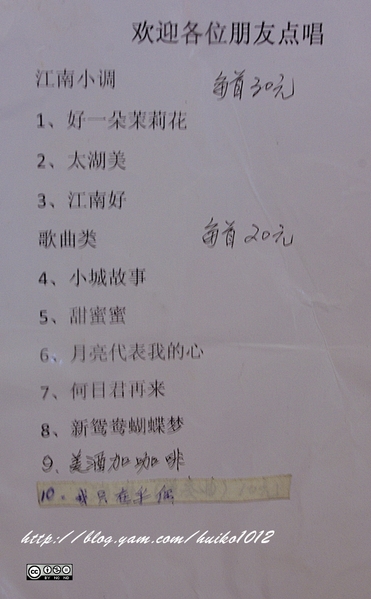 欢迎各位朋友点唱
江南小调 每首30元
1、好一朵茉莉花
2、太湖美
3、江南好
歌曲类 每首20元
4、小城故事
5、甜蜜蜜
6、月亮代表我的心
7、何日君再来
8、新鸳鸯蝴蝶梦
9、美酒加咖啡
10、我只在乎你
http://blog.yam.com/huiko1012
BY NC ND